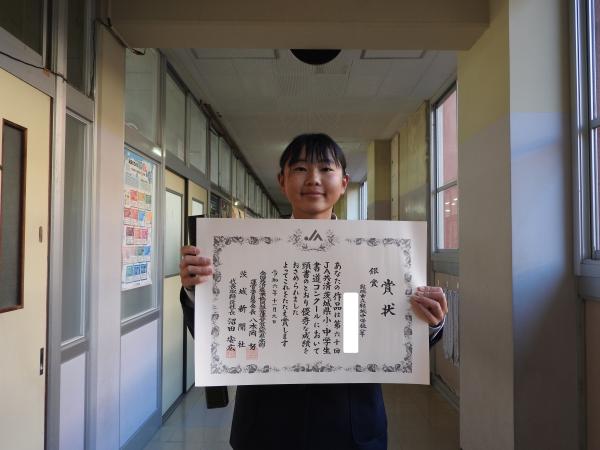 賞状
銀賞
あなたの作品は第六十回
JA共済茨城県小・中学生
書道コンクールにおいて
頭書のとおり優秀な成績を
おさめられました
よってこれをたたえ賞します
令和六年十一月九日
運営委員会会長 八木岡 努
茨城新聞社
代表取締役社長 沼田 安広
JA